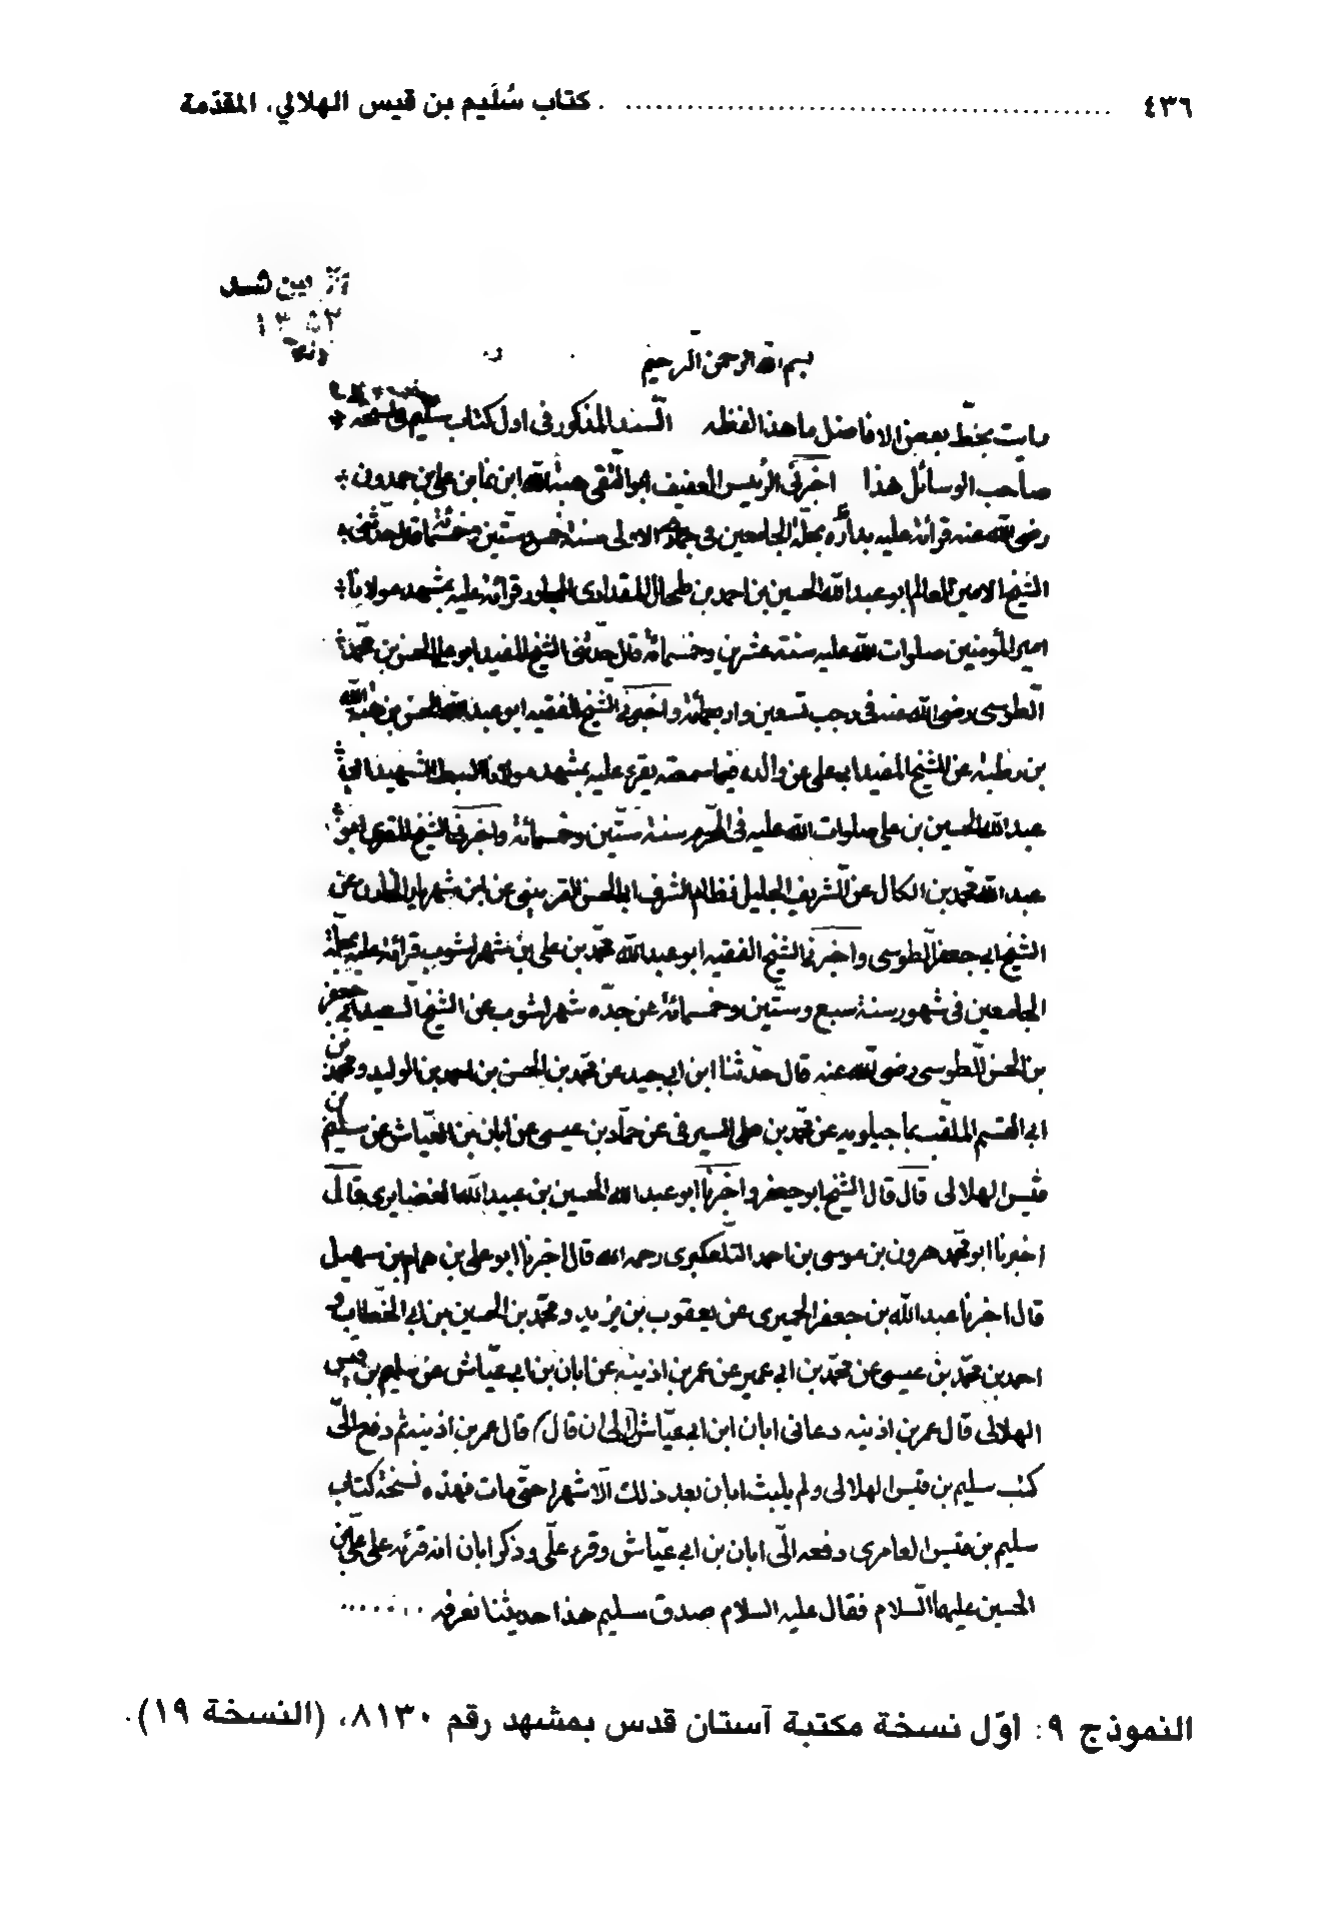 ٤٣٦ ........ كتاب سُلَيم بن قيس الهلالي، المقدّمة
بين شد
١٣٥٣
بسم الله الرحمن الرحيم
رايت بخطّ بعض الافاضل ما هذا لفظه السند المذكور فى اول كتاب سليم فى نسخة
صاحب الوسائل هذا اخبرنى الرئيس العفيف ابو التقى هبة الله ابن نما بن على بن حمدون
رضى الله عنه قرائة عليه بداره بحلة الجامعين فى جمادى الاولى سنة خمس وستين وخمسمائة قال حدّثنى
الشيخ الامين العالم ابو عبد الله الحسين بن احمد بن طحال المقدادى المجاور قرائة عليه بمشهد مولانا
امير المؤمنين صلوات الله عليه سنة عشرين وخمسمائة قال حدّثنى الشيخ المفيد ابو على الحسن بن محمّد
الطوسى رضى الله عنه فى رجب تسعين واربعمائة واخبرنى الشيخ الفقيه ابو عبد الله الحسن بن هبة الله
بن رطبة عن الشيخ المفيد ابى على عن والده فيما سمعته يقرء عليه بمشهد مولانا السبط الشهيد ابى
عبد الله الحسين بن على صلوات الله عليه فى المحرم سنة ستّين وخمسمائة واخبرنى الشيخ المقرى ابو
عبد الله محمد بن الكال عن الشريف الجليل نظام الشرف ابى الحسن العريضى عن ابن شهريار الخازن عن
الشيخ ابى جعفر الطوسى واخبرنى الشيخ الفقيه ابو عبد الله محمّد بن على بن شهراشوب قرائة عليه بحلّة
الجامعين فى شهور سنة سبع وستّين وخمسمائة عن جدّه شهراشوب عن الشيخ السعيد ابى جعفر محمد
بن الحسن الطوسى رضى الله عنه قال حدّثنا ابن ابى جيد عن محمّد بن الحسن بن احمد بن الوليد ومحمد بن
ابى القسم الملقّب بماجيلويه عن محمّد بن على الصيرفى عن حمّاد بن عيسى عن ابان بن ابى عيّاش عن سليم بن
قيس الهلالى قال قال الشيخ ابو جعفر واخبرنا ابو عبد الله الحسين بن عبيد الله الغضايرى قال
اخبرنا ابو محمّد هرون بن موسى بن احمد التلّعكبرى رحمه الله قال اخبرنا ابو على بن همام بن سهيل
قال اخبرنا عبد الله بن جعفر الحميرى عن يعقوب بن يزيد ومحمّد بن الحسين بن ابى الخطّاب و
احمد بن محمّد بن عيسى عن محمّد بن ابى عمير عن عمر بن اذينه عن ابان بن ابى عيّاش عن سليم بن قيس
الهلالى قال عمر بن اذينه دعانى ابان ابن ابى عيّاش (الى ان قال) قال عمر بن اذينه ثم دفع الىّ
كتب سليم بن قيس الهلالى ولم يلبث ابان بعد ذلك الّا شهرا حتّى مات فهذه نسخة كتاب
سليم بن قيس العامرى دفعه الىّ ابان بن ابى عيّاش وقرء علىّ وذكر ابان انه قرئه على علىّ بن
الحسين عليهما السّلام فقال عليه السلام صدق سليم هذا حديثنا نعرفه ......
النموذج ٩: اوّل نسخة مكتبة آستان قدس بمشهد رقم ٨١٣٠، (النسخة ١٩).